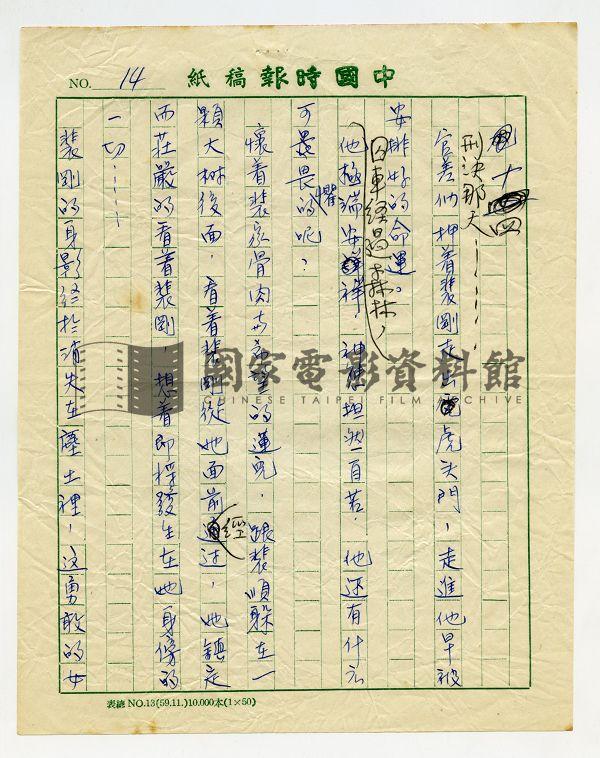 NO. 14
紙稿報時國中
十四
刑決那天……
官差們押着裴剛走出虎头門，走進他早被
安排好的命運。
囚車経過森林，
他極端安祥，神態坦然自若，他还有什么
可畏懼的呢？
懷着裴家骨肉与希望的蓮兒，跟裴順躲在一
顆大树後面，看着裴剛從她面前経过，她鎮定
而莊嚴的看着裴剛，想着即將發生在她身傍的
一切……
裴剛的身影終於消失在塵土裡，这勇敢的女
國家電影資料館
CHINESE TAIPEI FILM ARCHIVE
表總 NO.13(59.11.)10.000本(1×50)